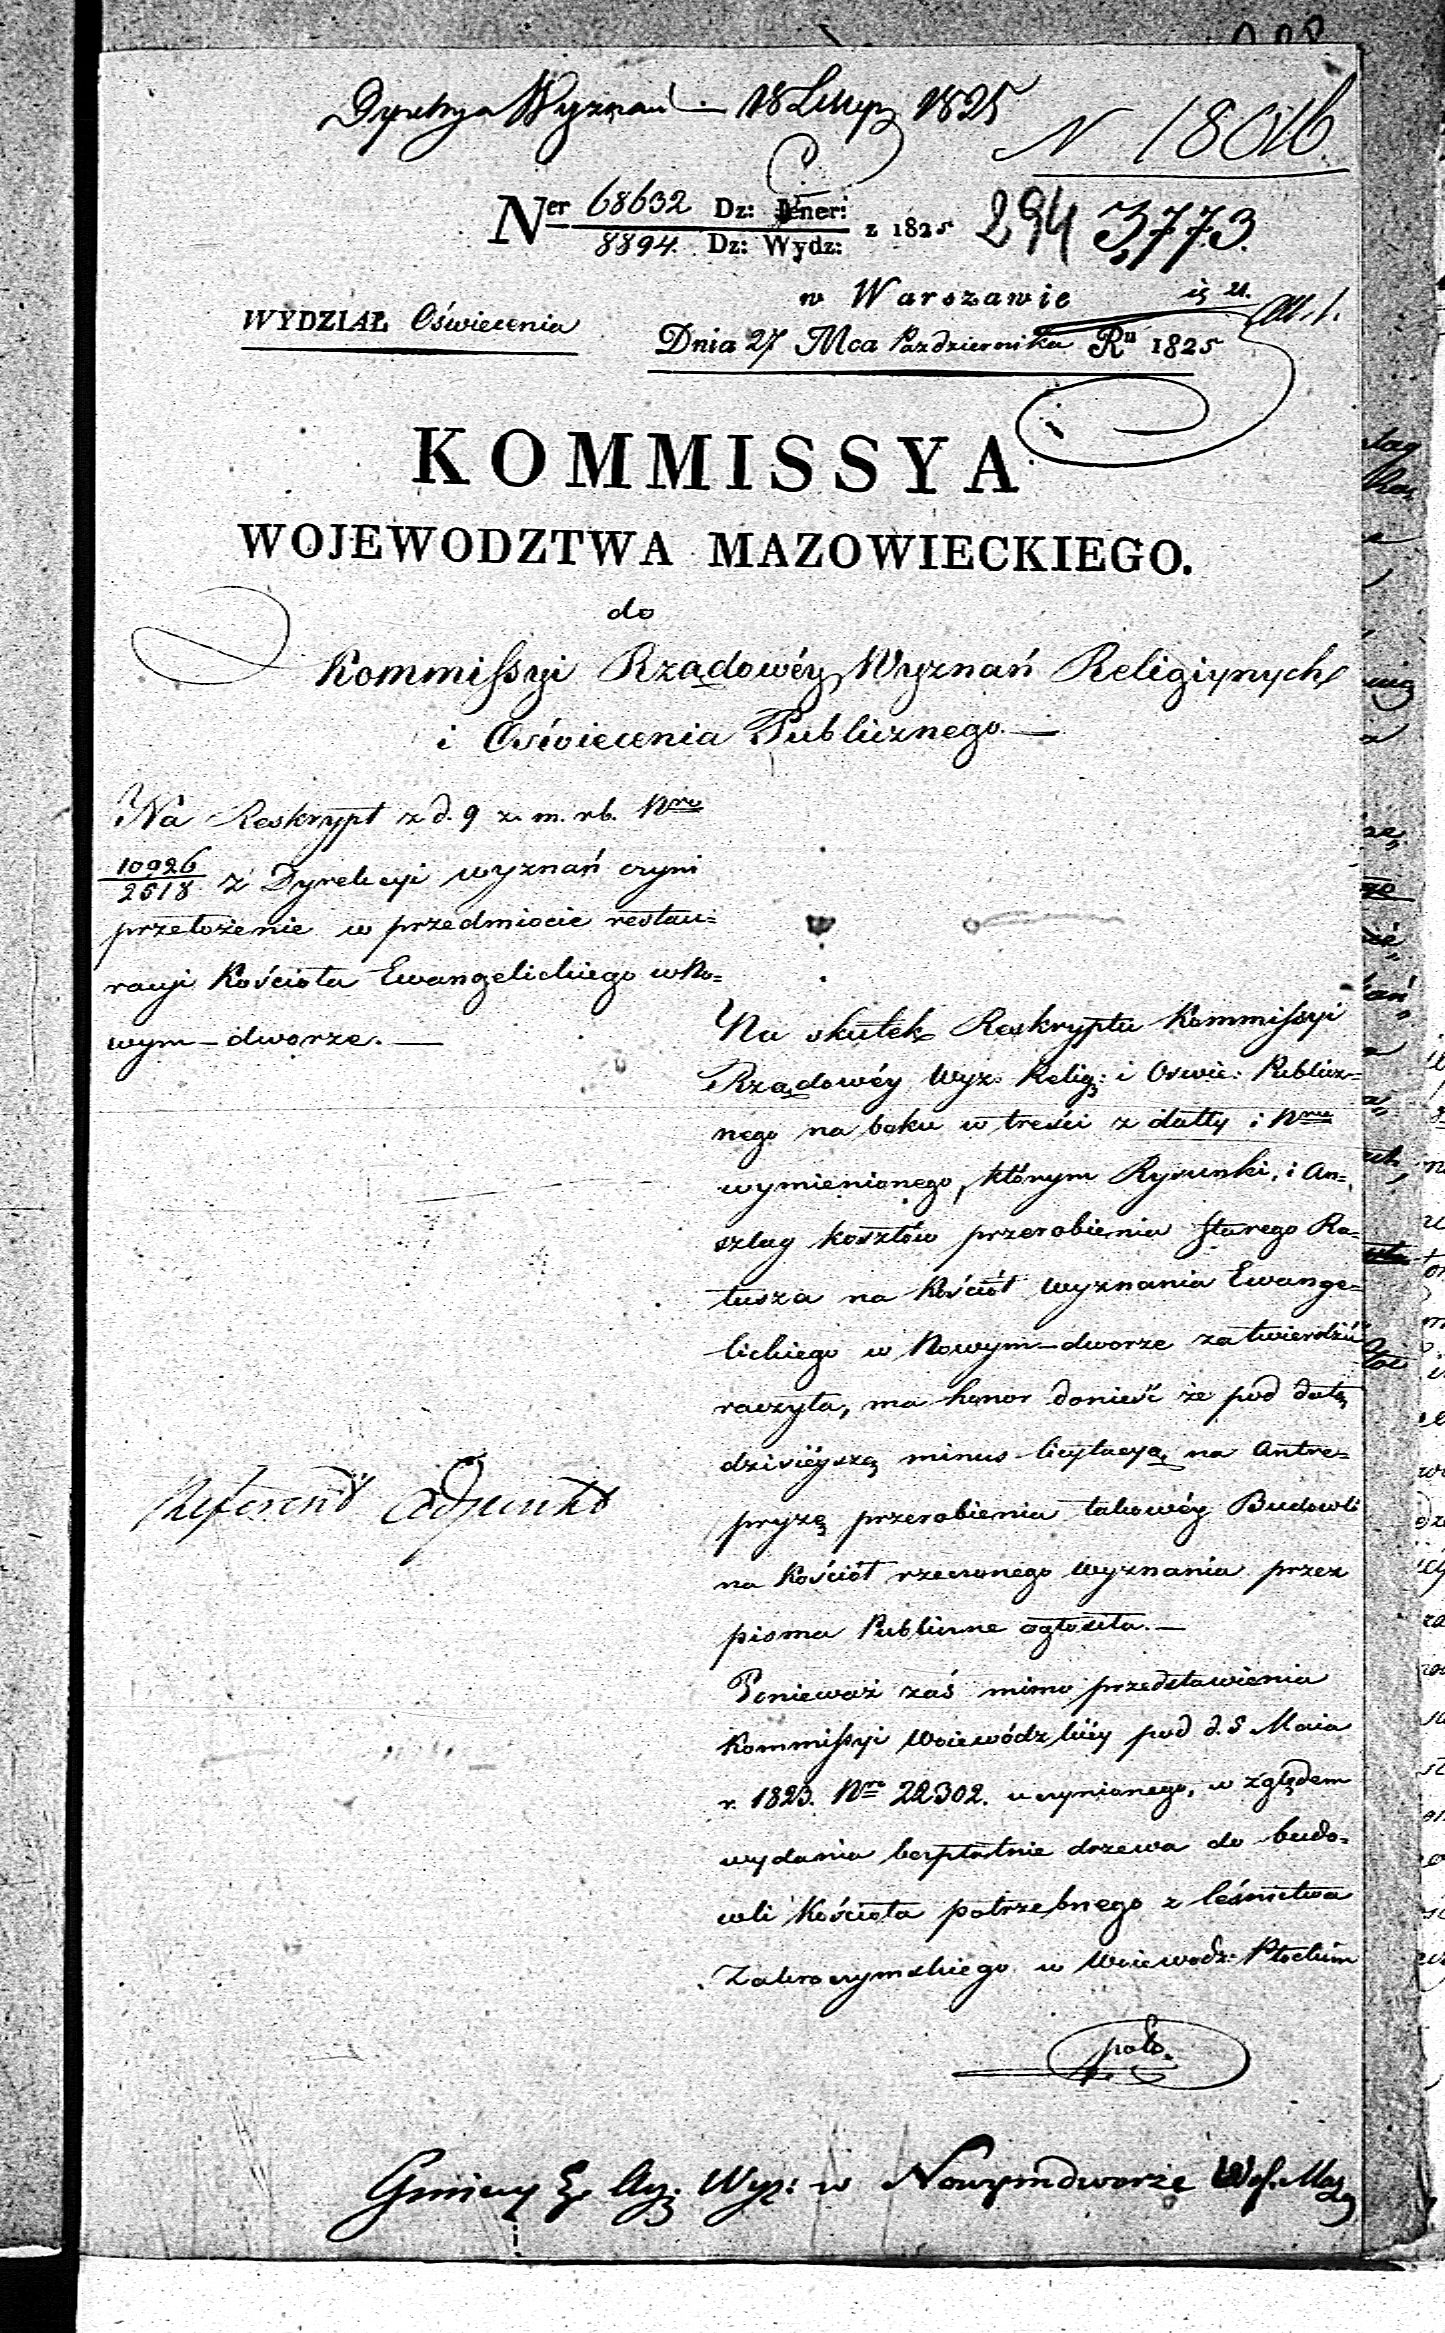 Dyrekcya Wyznań — 18 Listop 1825
N 18016
Ner 68632 Dz: Jener: z 1825 294 3,773.
8894. Dz: Wydz:
w Warszawie
WYDZIAŁ Oświecenia
Dnia 27 Mca Pazdziernika Ru 1825
KOMMISSYA
WOJEWODZTWA MAZOWIECKIEGO.
do
Kommissyi Rządowéy Wyznań Religiynych
i Oświecenia Publicznego.—
Na Reskrypt z d. 9 z. m. rb. Nro
10926
2518 z Dyrekcyi wyznań czyni
przełożenie w przedmiocie restau=
racyi Kościoła Ewangelickiego w No=
wym-dworze.—
Na skutek Reskryptu Kommissyi
Rządowéy Wyz. Relig: i Oswie: Publicz=
nego na boku w treści z datty i Nru
wymienionego, którym Rysunki, i An=
szlag kosztów przerobienia starego Ra=
tusza na Kościół wyznania Ewange=
lickiego w Nowym-dworze zatwierdzić
raczyła, ma honor donieść że pod datą
dzisiéyszą minus licytacyą na Antre=
pryzę przerobienia takowéy Budowli
na Kościół rzeczonego wyznania przez
pisma Publiczne ogłosiła.—
Referent Adjunkt
Ponieważ zaś mimo przedstawienia
Kommissyi Woiewódzkiéy pod d. 5 Maia
r. 1823. Nro 22302. uczynionego, względem
wydania bezpłatnie drzewa do budo=
wli Kościoła potrzebnego z leśnictwa
Zakroczymskiego w Woiewodz: Płockim
poło.
Gminy E. Aug. Wyz: w Nowymdworze Woj. Maz